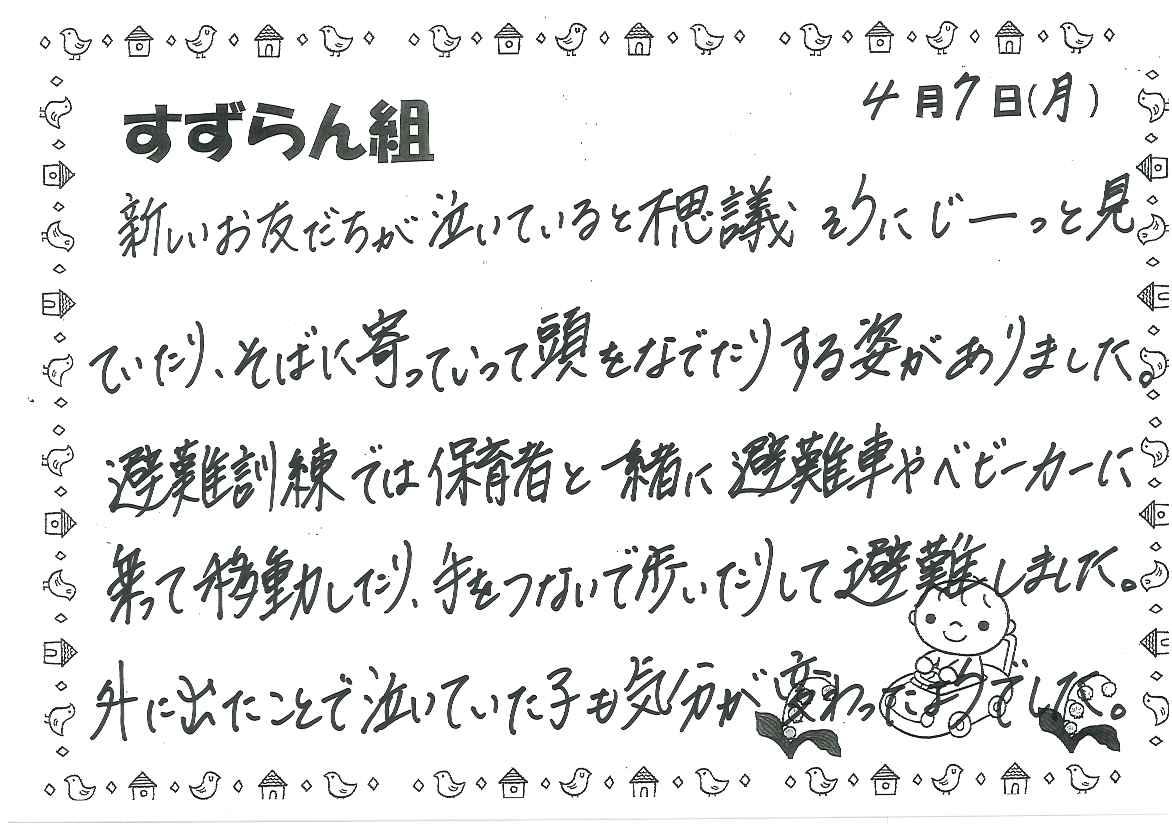 4月7日(月)
すずらん組
新しいお友だちが泣いていると不思議そうにじーっと見
ていたり、そばに寄っていって頭をなでたりする姿がありました。
避難訓練では保育者と一緒に避難車やベビーカーに
乗って移動したり、手をつないで歩いたりして避難しました。
外に出たことで泣いていた子も気分が変わったようでした。